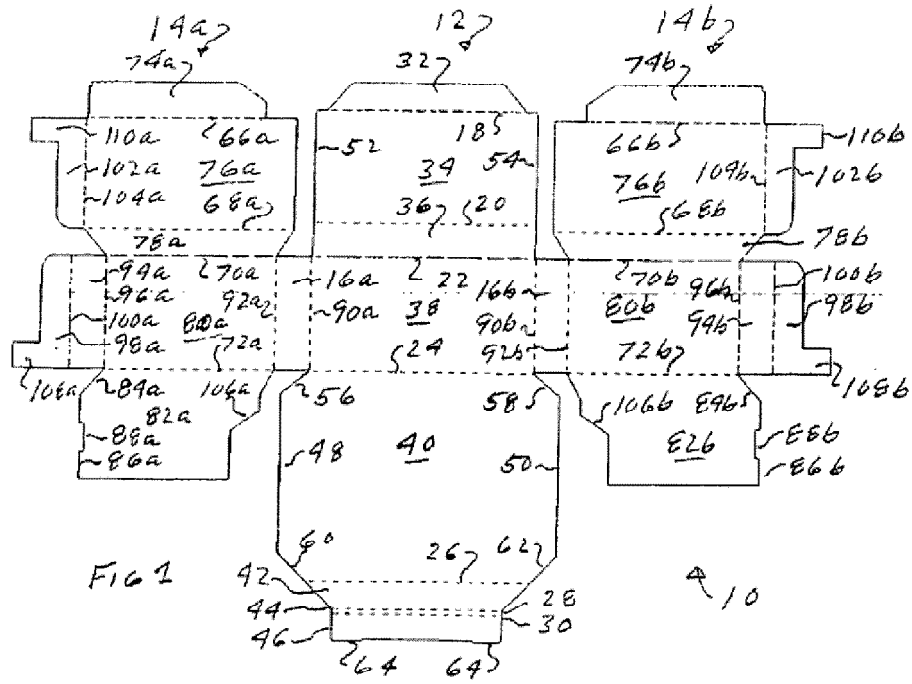 14a 12 14b
74a 32 74b
110a 66a 18 66b 110b
102a 76a 52 34 54 76b 104b 102b
104a 68a 36 20 68b
78a 78b
94a 70a 16a 22 16b 70b 96b 100b
96a 92a 90a 38 90b 80b 94b 98b
100a 80a
98a 72a 24 92b 72b
108a 84a 106a 56 58 106b 84b 108b
82a 40 88b
88a 48 50 82b 86b
86a
60 26 62
FIG 1 42 10
44 28
46 30
64 64